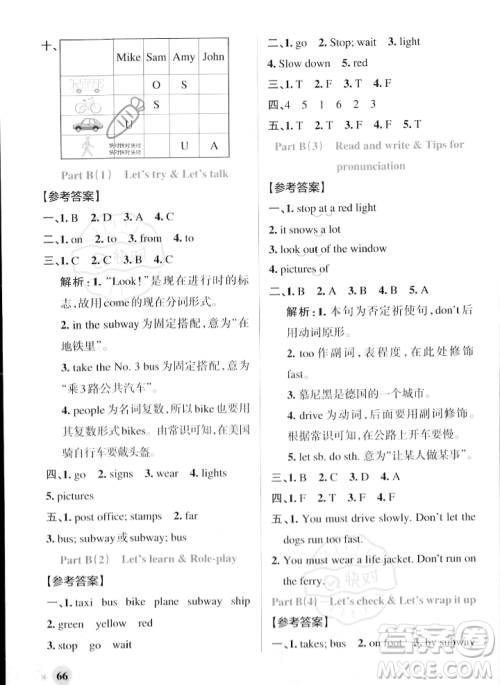 十、
Mike Sam Amy John
O S
S
U
U A
Part B(1) Let's try & Let's talk
【参考答案】
一、1. B 2. D 3. A 4. C
二、1. on 2. to 3. from 4. to
三、1. C 2. A 3. A 4. C
解析：1. “Look！”是现在进行时的标
志，故用come的现在分词形式。
2. in the subway 为固定搭配，“在
地铁里”。
3. take the No. 3 bus 为固定搭配，
“乘3路公共汽车”。
4. people 为名词复数，所以 bike 也
用复数 bikes。由常识可知，在美国
骑自行车要戴头盔。
四、1. go 2. signs 3. wear 4. lights
5. pictures
五、1. post office; stamps 2. far
3. bus; subway 或 subway; bus
Part B(2) Let's learn & Role-play
【参考答案】
一、1. taxi bus bike plane subway ship
2. green yellow red
3. stop go wait
66
二、1. go 2. Stop; wait 3. light
4. Slow down 5. red
三、1. T 2. F 3. F 4. T 5. T
四、4 5 1 6 2 3
Part B(3) Read and write & Tips for
pronunciation
【参考答案】
一、1. stop at a red light
2. it snows a lot
3. look out of the window
4. pictures of
二、1. B 2. A 3. C 4. B 5. A
解析：1. 本句为否定祈使句，don't 后
用动词原形。
2. too 作副词，表程度，在此修饰
fast。
3. 慕尼黑是德国的一个城市。
4. drive 为动词，应用副词修饰。
由常识可知，在公路上开车要慢。
5. let sb. do sth. “让某人做某事”。
三、1. C 2. D 3. A 4. B
四、1. T 2. T 3. F 4. F 5. F
五、1. You must drive slowly. Don't let the
dogs run too fast.
2. You must wear a life jacket. Don't run on
the ferry.
Part B(4) Let's check & Let's wrap it up
【参考答案】
一、1. takes; bus 2. on foot 3. by subway
作业帮
MXQE.COM